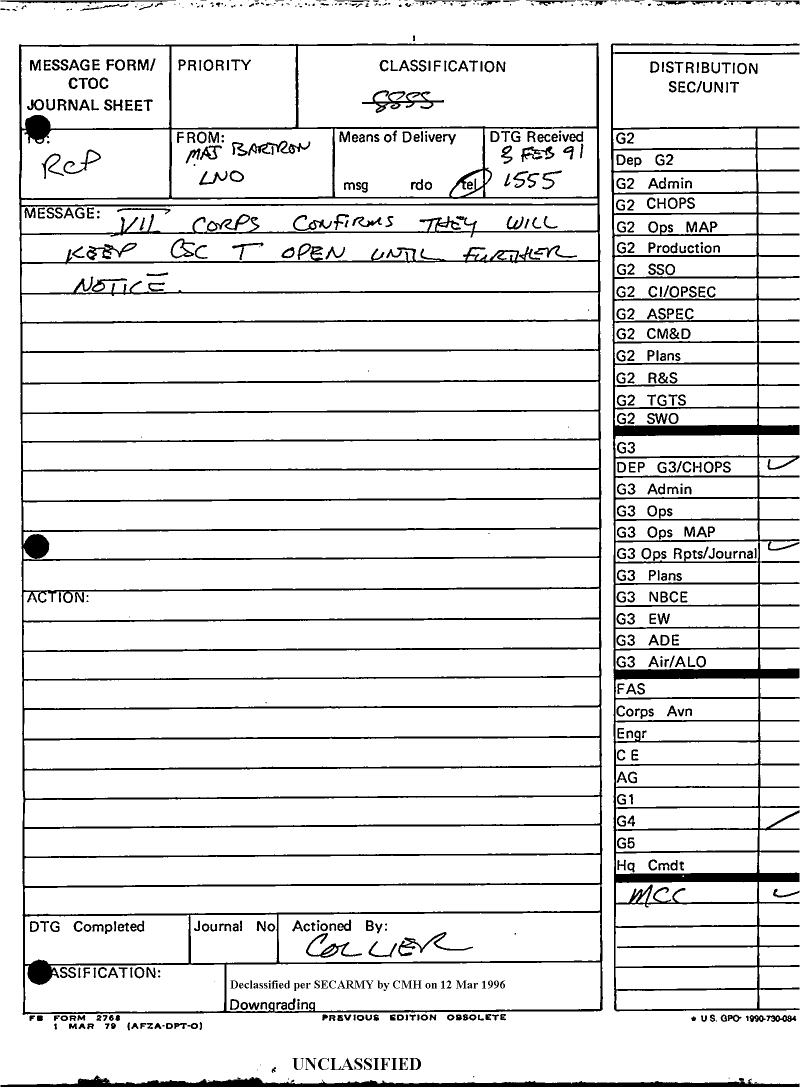 MESSAGE FORM/
CTOC
JOURNAL SHEET
PRIORITY
CLASSIFICATION
TO:
RCP
FROM:
MAJ BARTRON
LNO
Means of Delivery
msg rdo tel
DTG Received
3 FEB 91
1555
MESSAGE: VII CORPS CONFIRMS THEY WILL
KEEP CSC T OPEN UNTIL FURTHER
NOTICE.
ACTION:
DTG Completed
Journal No
Actioned By:
COLLIER
ASSIFICATION:
Declassified per SECARMY by CMH on 12 Mar 1996
Downgrading
FB FORM 2768
1 MAR 79 (AFZA-DPT-O)
PREVIOUS EDITION OBSOLETE
DISTRIBUTION
SEC/UNIT
G2
Dep G2
G2 Admin
G2 CHOPS
G2 Ops MAP
G2 Production
G2 SSO
G2 CI/OPSEC
G2 ASPEC
G2 CM&D
G2 Plans
G2 R&S
G2 TGTS
G2 SWO
G3
DEP G3/CHOPS
G3 Admin
G3 Ops
G3 Ops MAP
G3 Ops Rpts/Journal
G3 Plans
G3 NBCE
G3 EW
G3 ADE
G3 Air/ALO
FAS
Corps Avn
Engr
C E
AG
G1
G4
G5
Hq Cmdt
MCC
* U.S. GPO: 1990-730-084
UNCLASSIFIED